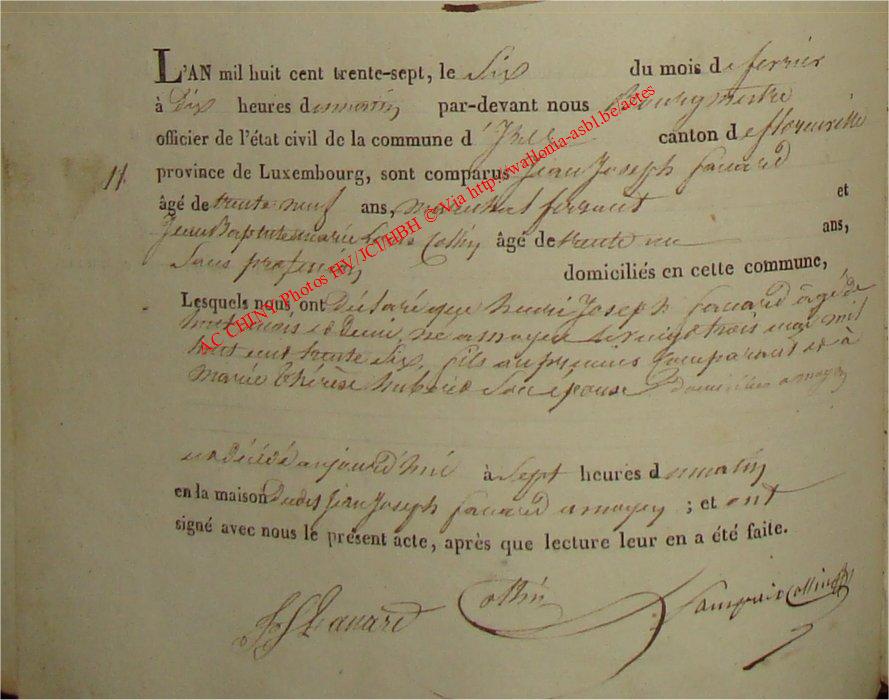 L'AN mil huit cent trente-sept, le Six du mois de fevrier
à Dix heures du matin par-devant nous Bourgmestre
officier de l'état civil de la commune d'Izel canton de florenville
11 province de Luxembourg, sont comparus Jean Joseph Lavard
âgé de trente neuf ans, marechal ferrant et
Jean Baptiste marie Louis Collin âgé de trente un ans,
Sans profession domiciliés en cette commune,
Lesquels nous ont Déclaré que henri Joseph Lavard âgé de
huit mois et demi, né a moyen le vingt trois mai mil
huit cent trente Six, fils au premier Comparant et à
marie thérèse hubert Son épouse Domiciliés a moyen
est Décédé aujourd'hui à Sept heures du matin
en la maison Dudit Jean Joseph Lavard a moyen ; et ont
signé avec nous le présent acte, après que lecture leur en a été faite.
JJ Lavard Collin Collin
AC CHINY Photos HY/JCI/HBH © Via http://wallonia-asbl.be/actes